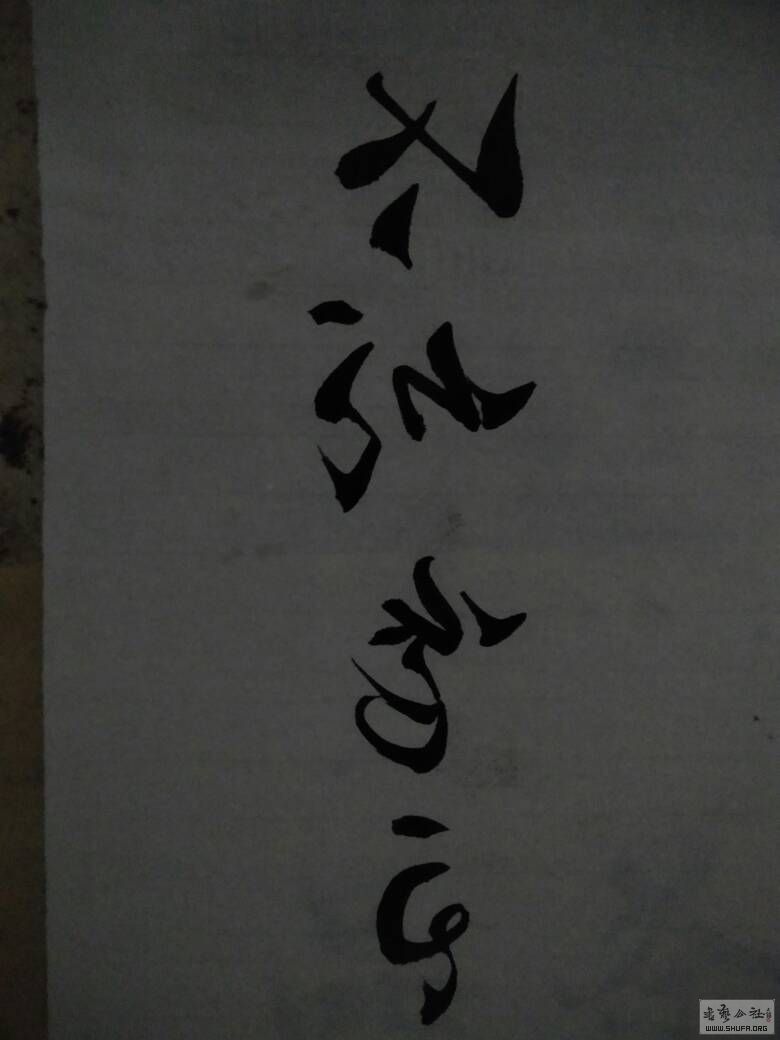 不忘初心
书艺公社
WWW.SHUFA.ORG